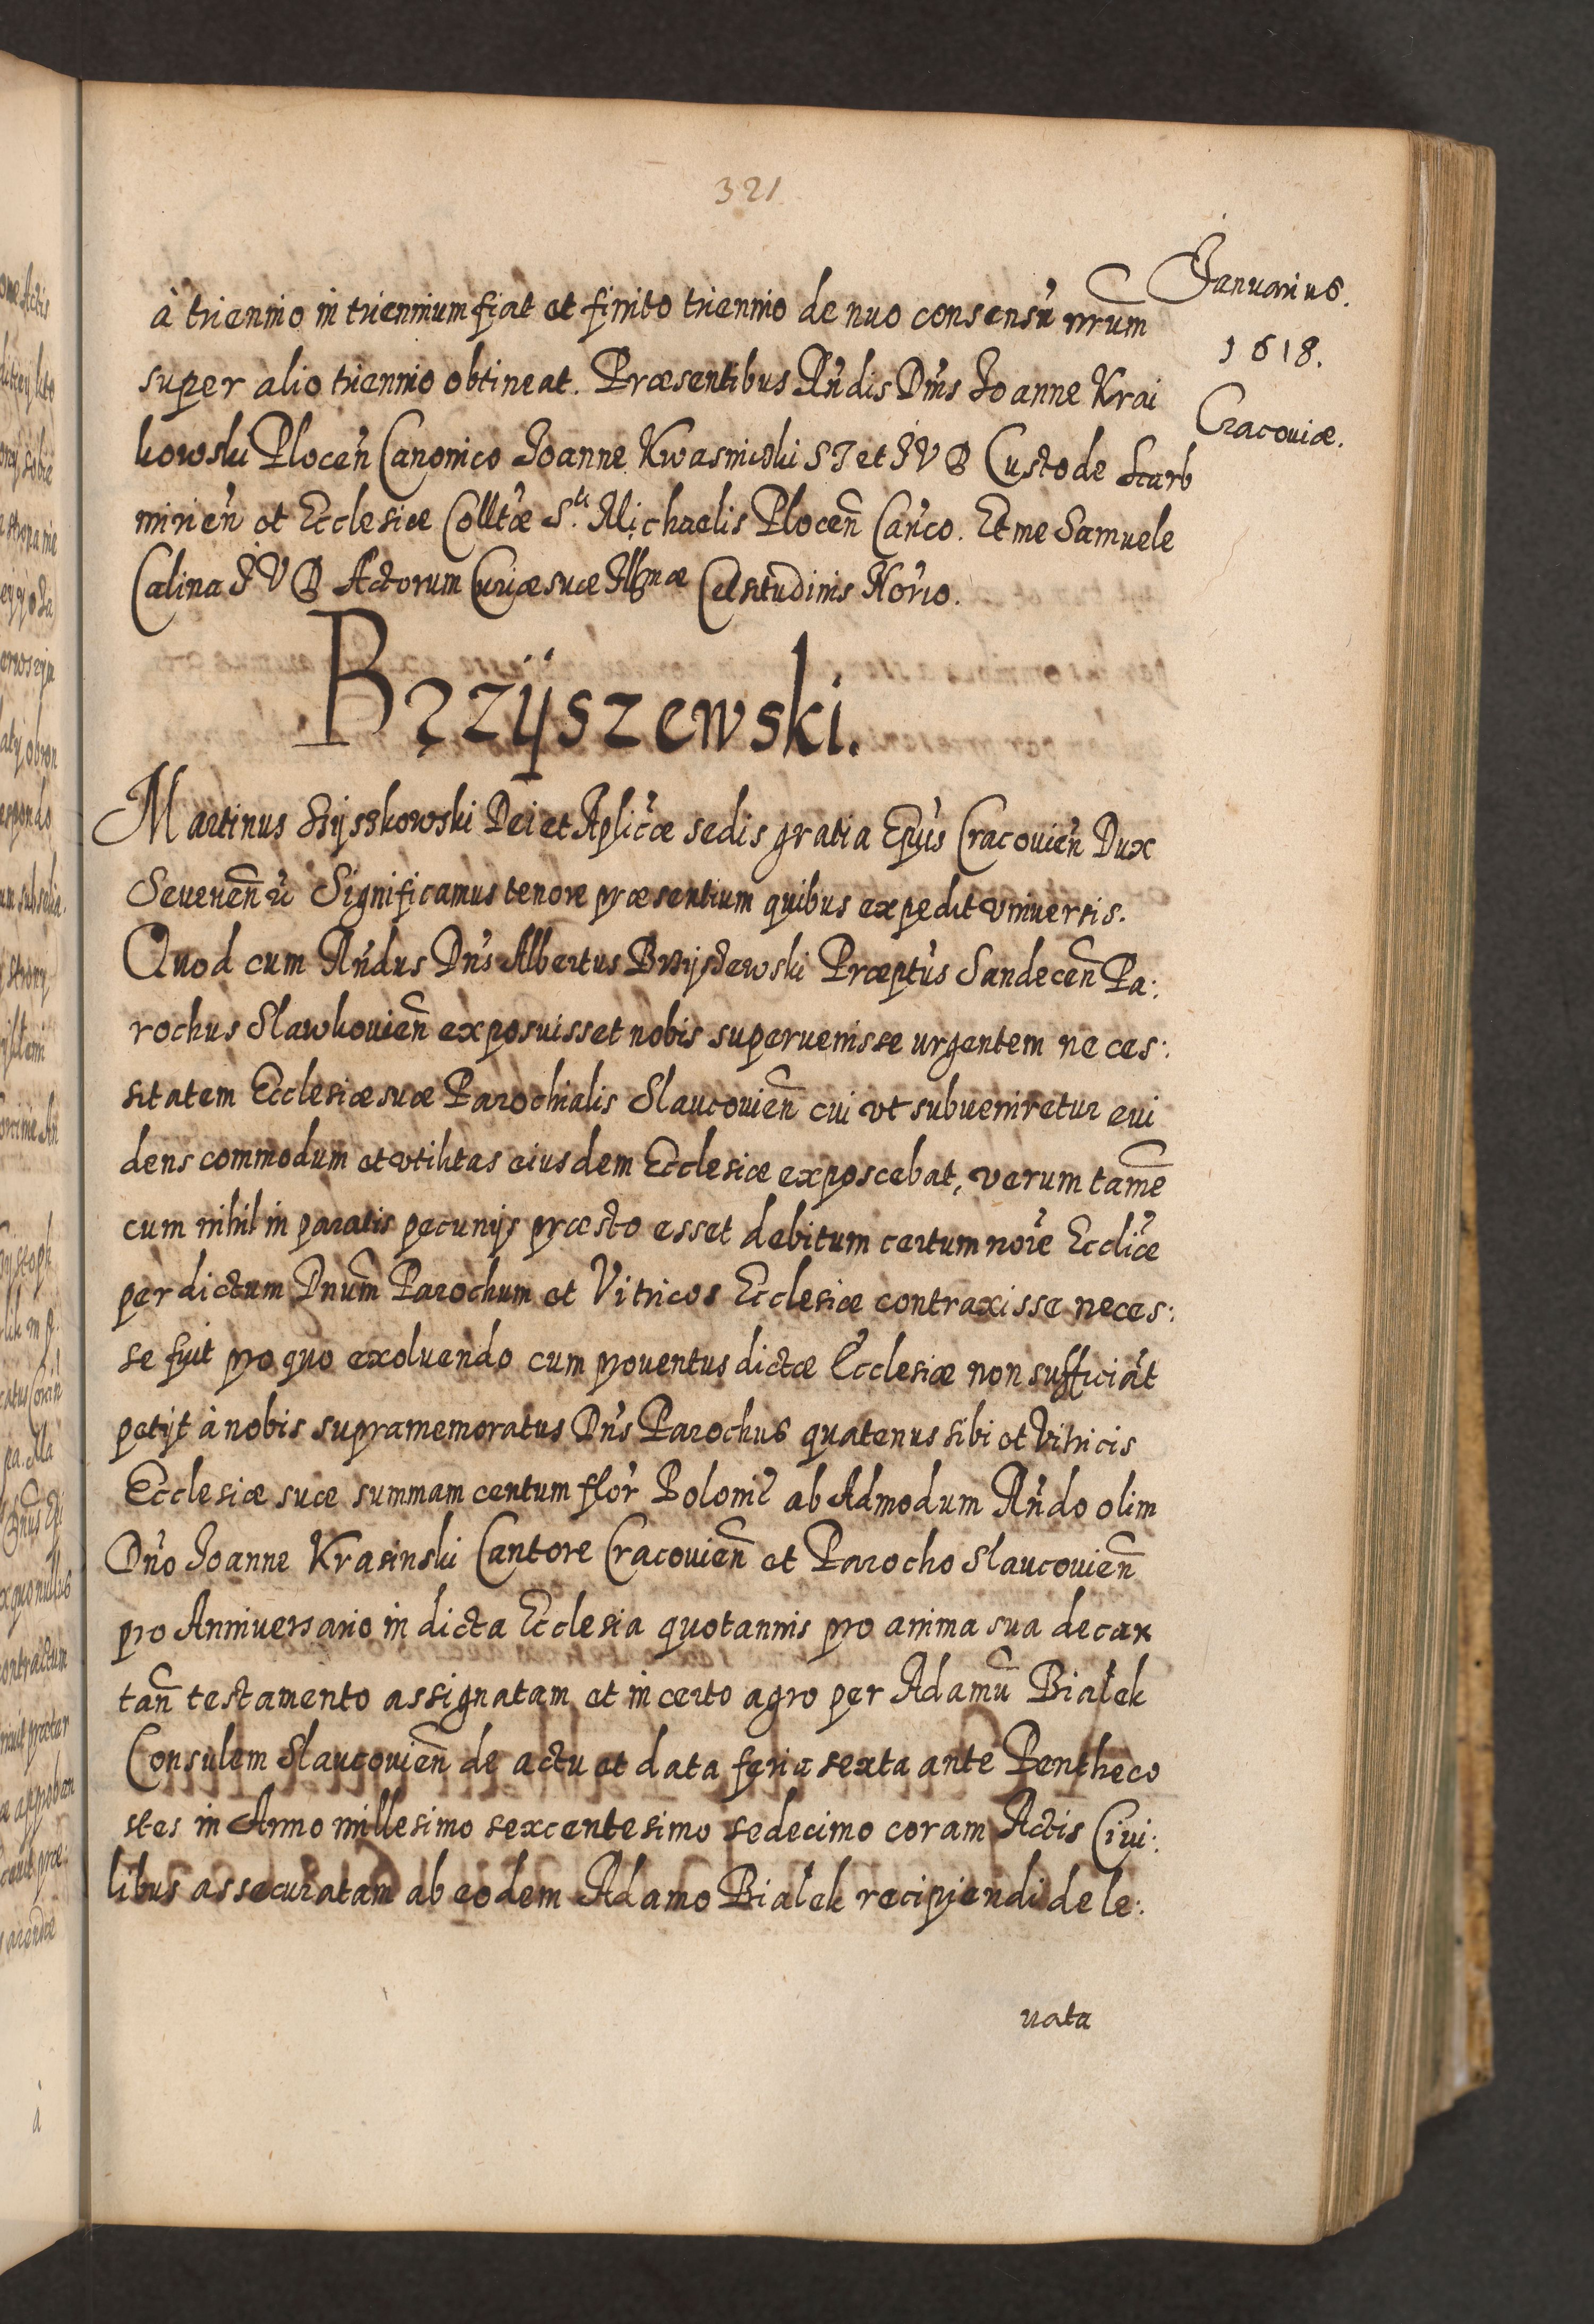 321
Januarius.
1618.
Cracoviæ.
à triennio in triennium fiat et finito triennio de nuo consensũ nrũm
super alio triennio obtineat. Præsentibus Rñdis Dñis Joanne Krai
kowski Plocen̄ Canonico Joanne Kwasnicki ST et JVD Custode Scarb
mirien̄ et Ecclesiæ Colltæ S.ti Michaelis Plocen̄ Can̄co. Et me Samuele
Calina JVD Actorum Curiæ suæ Illmæ Celsitudinis Nõrio.
Brzÿszewski.
Martinus Szyszkowski Dei et Aplicæ sedis gratia Epũs Cracovien̄ Dux
Severien̄ &c Significamus tenore præsentium quibus expedit vniversis.
Quod cum Rñdus Dñs Albertus Brzyszewski Præptũs Sandecen̄ Pa:
rochus Slawkovien̄ exposuisset nobis supervenisse urgentem neces:
sitatem Ecclesiæ suæ Parochialis Slaucovien̄ cui vt subveniretur evi
dens commodum et vtilitas eiusdem Ecclesiæ exposcebat, verum tamē
cum nihil in paratis pecunijs præsto esset debitum certum noīe Ecclīæ
per dictum Dnūm Parochum et Vitricos Ecclesiæ contraxisse neces:
se fuit pro quo exoluendo cum proventus dictæ Ecclesiæ non sufficiāt
petijt à nobis supramemoratus Dñs Parochus quatenus sibi et Vitricis
Ecclesiæ suæ summam centum flor̃ Poloniē ab Admodum Rñdo olim
Dño Joanne Krasinski Cantore Cracovien̄ et Parocho Slaucovien̄
pro Anniversario in dicta Ecclesia quotannis pro anima sua decan
tan̄ testamento assignatam et in certo agro per Adamū Białek
Consulem Slaucovien̄ de actu et data feria sexta ante Pentheco
stes in Anno millesimo sexcentesimo sedecimo coram Actis Civi:
libus assecuratam ab eodem Adamo Białek recipiendi de le:
vata